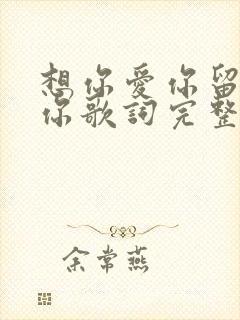 想你愛你留
你歌詞完整
余常燕